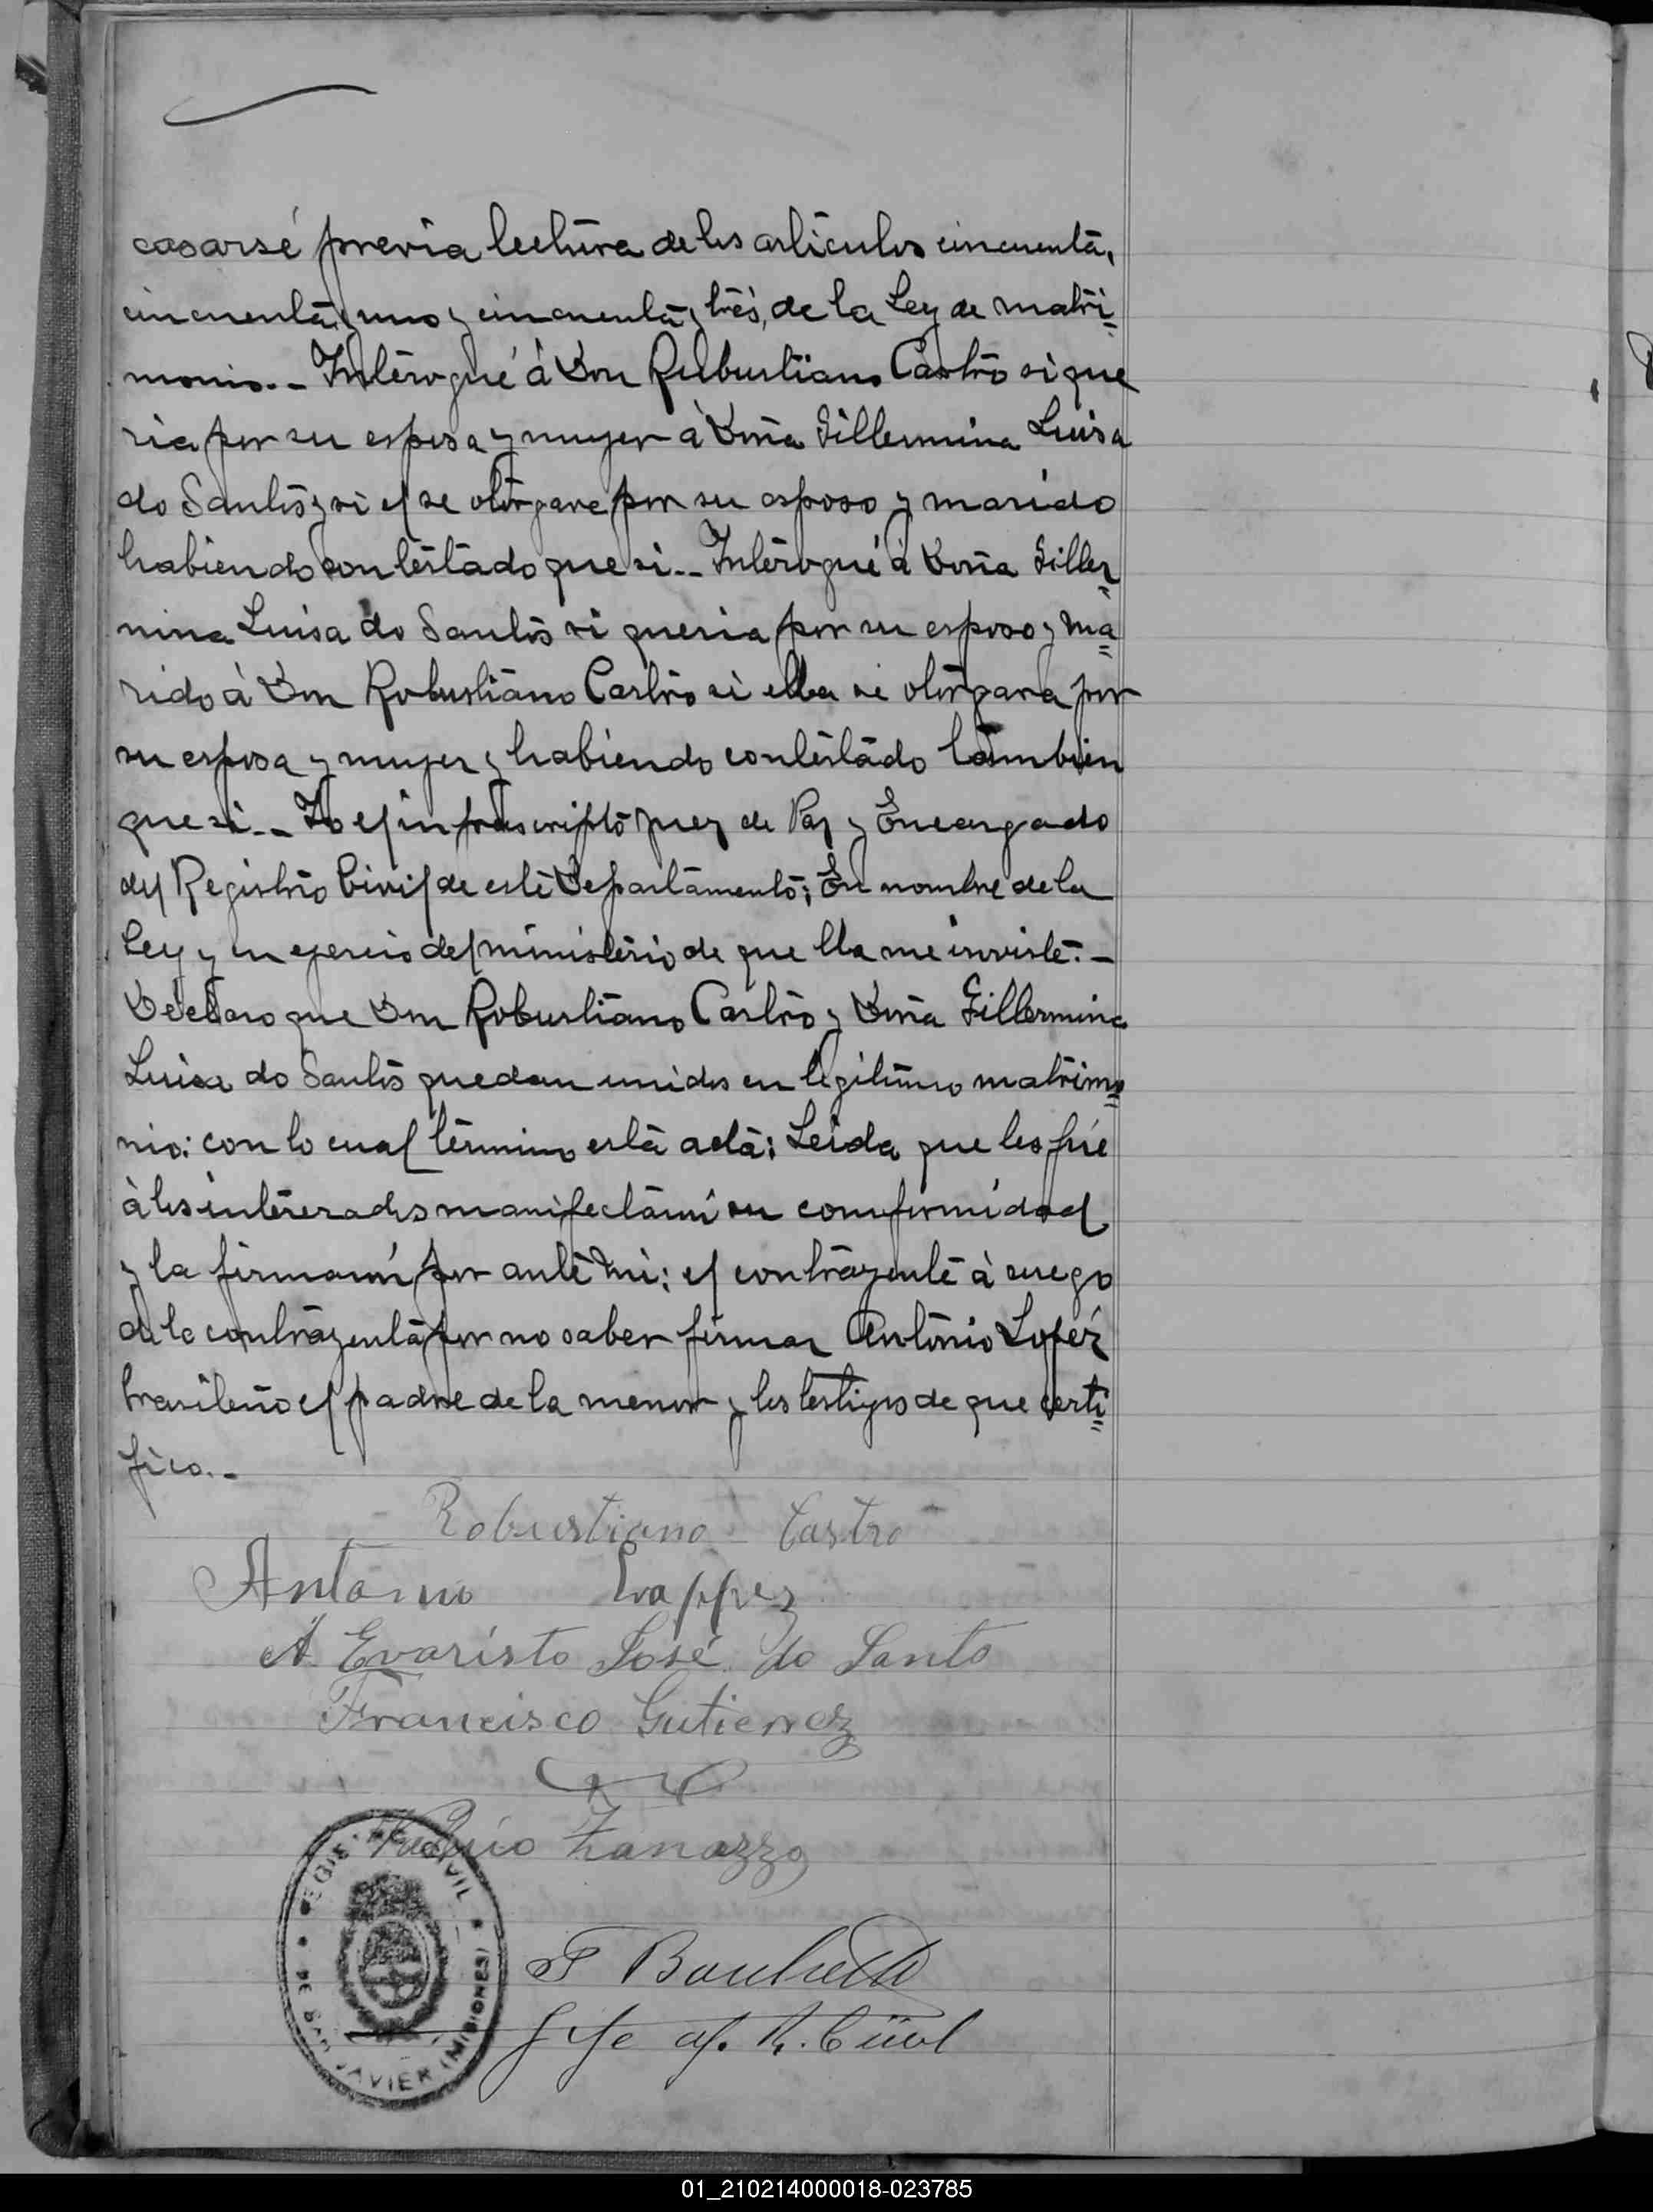 casarsé previa lectura de los articulos cincuenta,
cincuenta y uno y cincuenta y trés, de la Ley de matri=
monio.- Interogué á Don Rubustiano Castro si que
ria por su esposa y muger á Doña Gillermina Luisa
do Santos y si el se otorgava por su esposo y marido
habiendo contestado que si.- Interogué á Doña Giller=
mina Luisa do Santos si queria por su esposo y ma=
rido á Don Robustiano Castro si ella se otorgava por
su esposa y muger y habiendo contestado tambien
que si.- Yo el infrascripto Juez de Paz y Encargado
del Registro Civil de este Departamento; En nombre de la
Ley y en egercio del ministerio de que lla me inviste.-
Declaro que Don Robustiano Castro y Doña Gillermina
Luisa do Santos quedan unidos en legitimo matrimo=
nio: con lo cual término esta acta: Leida que les fué
á los interesados manifestaron su comformidad
y la firmaron por ante mi: el contrayente á ruego
de la contrayenta por no saber firmar Antonio Lopéz
brasileño el padre de la menor y los testigos de que certi=
fico.-
Robustiano Castro
Antonio Loppez
A Evaristo José do Santo
Francisco Gutierrez
Zanazzo
REGIS CIVIL
DE SAN JAVIER (MISIONES)
Gefe R. Civil
01_210214000018-023785